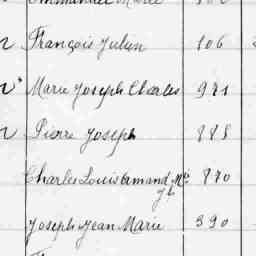 Emmanuel Marie
n François Julien 106
n° Marie Joseph Charles 971
n Pierre Joseph 885
Charles Louis Armand Mie 870
J L
Joseph Jean Marie 390